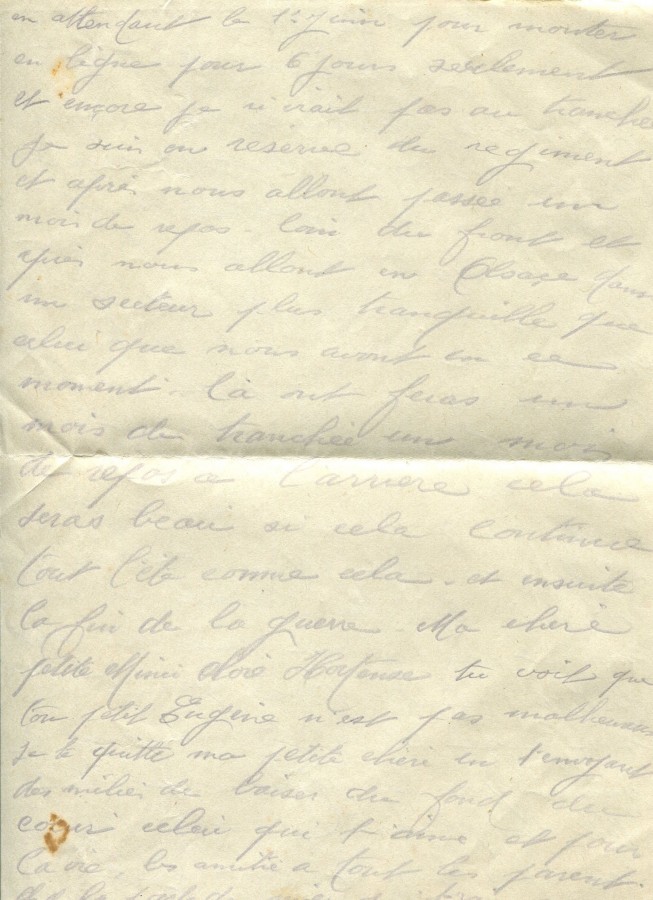 en attendant le 1er Juin pour monter
en ligne pour 6 jours seulement
et encore je n'irait pas au tranchée
je suis en reserve du regiment
et après nous allont passee un
mois de repos loin du front et
après nous allont en Alsace dans
un secteur plus tranquille que
celui que nous avont en ce
moment. là ont feras un
mois de tranchée un mois
de repos a l'arriere cela
seras beau si cela continue
tout l'été comme cela. et ensuite
la fin de la guerre. Ma cheré
petite Mimi cloré Hortense tu voit que
ton petit Eugène n'est pas malheureux
Je te quitte ma petite cheri en t'envoyant
des milier de baiser du fond du
cœur celui qui t'aime et pour
la vie, les amitié a tout les parent.